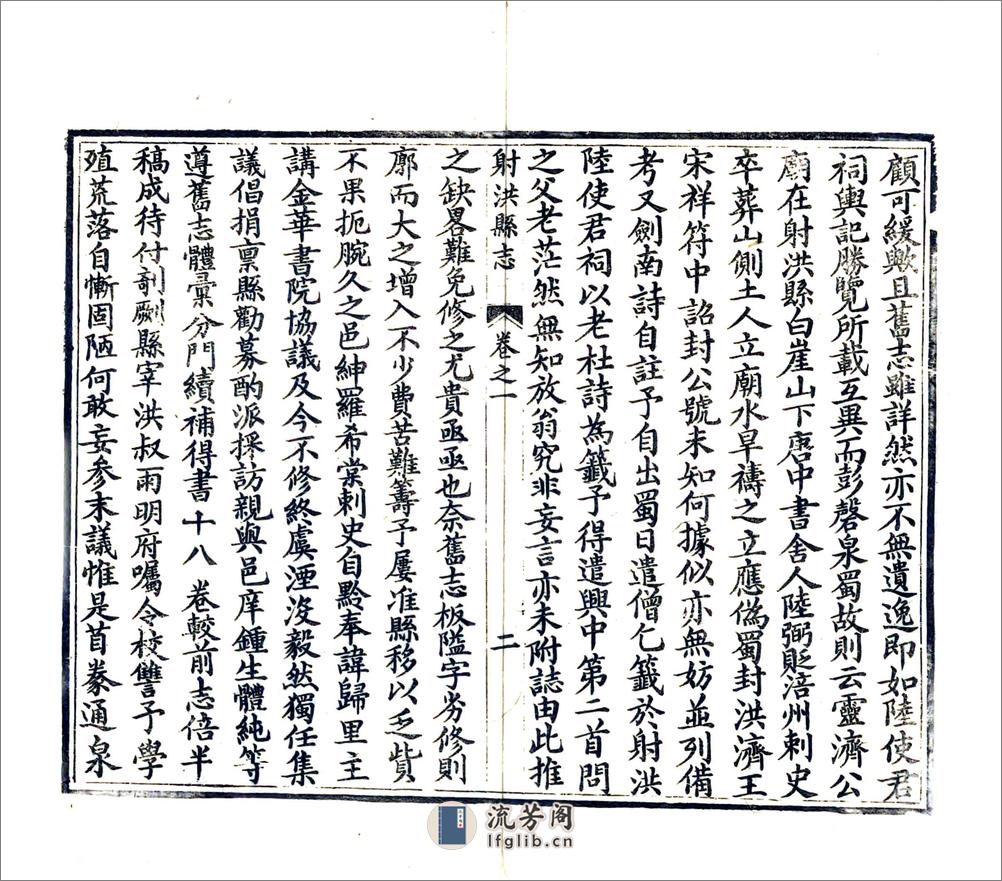 顧可緩歟且舊志雖詳然亦不無遺逸即如陸使君
祠輿記勝覽所載互異而彭磬泉蜀故則云靈濟公
廟在射洪縣白崖山下唐中書舍人陸弼貶涪州刺史
卒葬山側土人立廟水旱禱之立應偽蜀封洪濟王
宋祥符中詔封公號未知何據似亦無妨並列備
考又劍南詩自註予自出蜀日遣僧乞籤於射洪
陸使君祠以老杜詩為籤予得遣興中第二首問
之父老茫然無知放翁究非妄言亦未附誌由此推
射洪縣志 卷之一 二
之缺畧難免修之尤貴亟亟也奈舊志板隘字劣修則
廓而大之增入不少費苦難籌予屢准縣移以乏貲
不果扼腕久之邑紳羅希棠刺史自黔奉諱歸里主
講金華書院協議及今不修終虞湮沒毅然獨任集
議倡捐稟縣勸募酌派採訪親與邑庠鍾生體純等
遵舊志體彙分門續補得書十八卷較前志倍半
稿成待付剞劂縣宰洪叔雨明府囑令校讐予學
殖荒落自慚固陋何敢妄參末議惟是首豢通泉
流芳阁
lfglib.cn